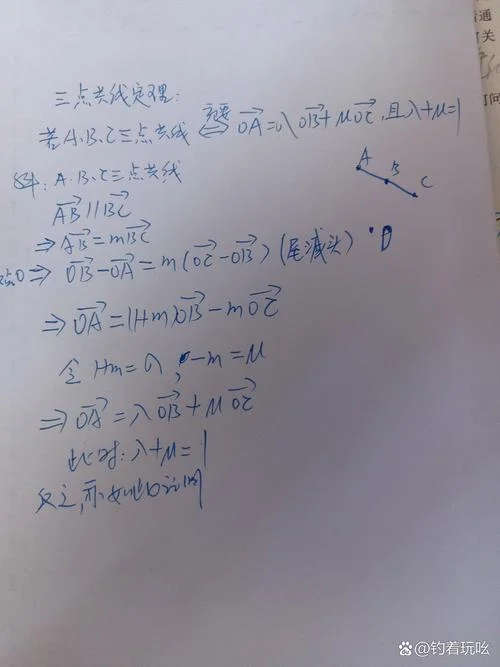 三点共线定理:
若A.B.C三点共线 ⇔ 充要 OA→=λOB→+μOC→,且λ+μ=1
解: A.B.C三点共线
AB→∥BC→
⇒AB→=mBC→
O⇒ OB→-OA→=m(OC→-OB→) (尾减头)
⇒OA→=(1+m)OB→-mOC→
令1+m=λ, -m=μ
⇒OA→=λOB→+μOC→
此时:λ+μ=1
反之,亦如此可证明
A
B
C
O
通
关
问
@钓着玩吆